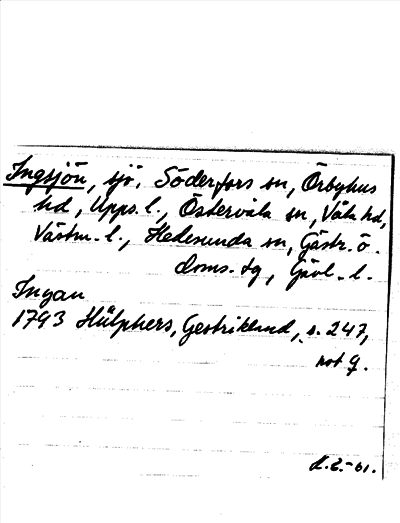 Ingsjön, sjö, Söderfors sn, Örbyhus
hd, Upps. l., Östervåla sn, Våla hd,
Västm. l., Hedesunda sn, Gästr. ö.
doms. tg, Gävl. l.
Ingan
1793 Hülphers, Gestrikland, s. 247,
not g.